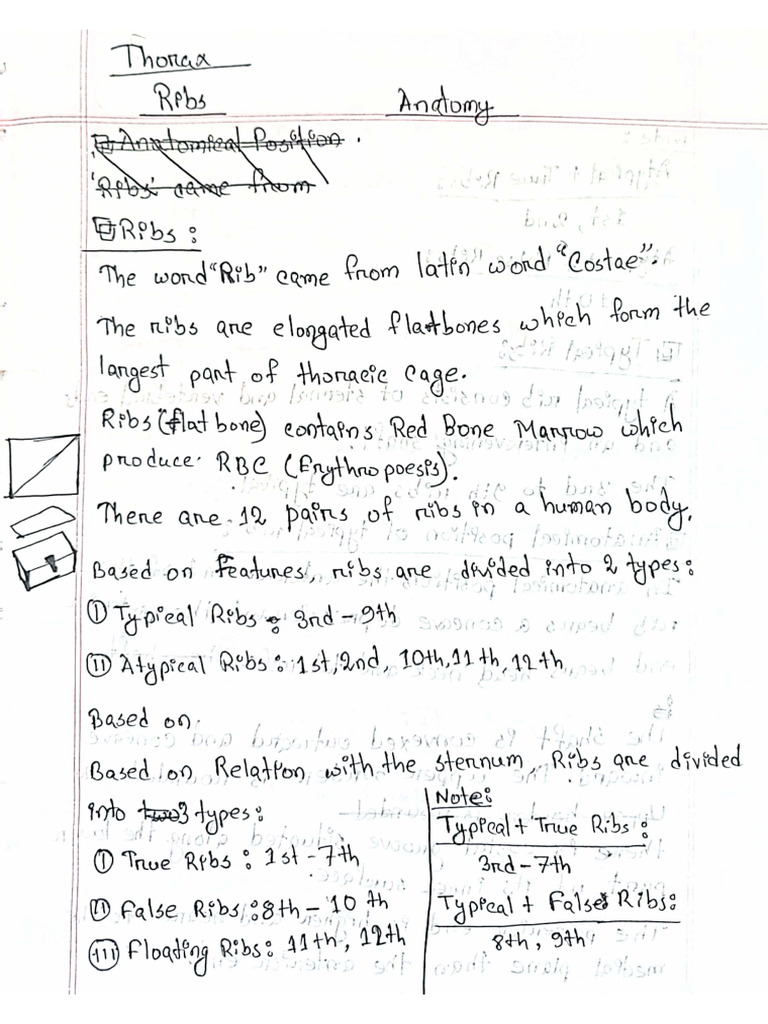 Thorax
Ribs Anatomy
Anatomical Position.
'Ribs' came from
Ribs:
The word "Rib" came from latin word "Costae".
The ribs are elongated flat bones which form the
largest part of thoracic cage.
Ribs (flat bone) contains Red Bone Marrow which
produce RBC (Erythropoesis).
There are 12 pairs of ribs in a human body.
Based on features, ribs are divided into 2 types:
(I) Typical Ribs: 3rd-9th
(II) Atypical Ribs: 1st, 2nd, 10th, 11th, 12th
Based on
Based on Relation with the sternum, Ribs are divided
into two 3 types:
(I) True Ribs: 1st-7th
(II) False Ribs: 8th-10th
(III) Floating Ribs: 11th, 12th
Note:
Typical + True Ribs:
3rd-7th
Typical + False Ribs:
8th, 9th